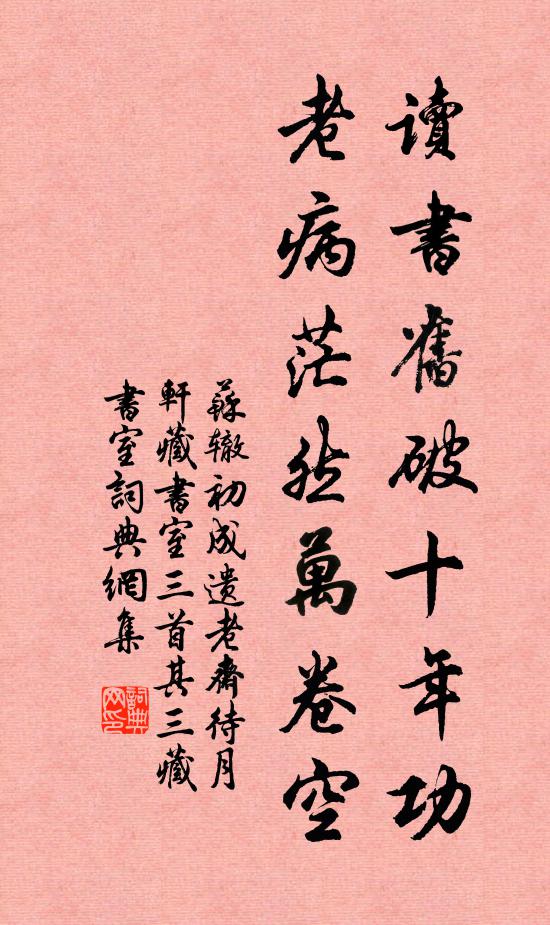 讀書舊破十年功
老病茫然萬卷空
蘇辙初成遺老齋待月
軒藏書室三首其三藏
書室詞典網集
詞典网印